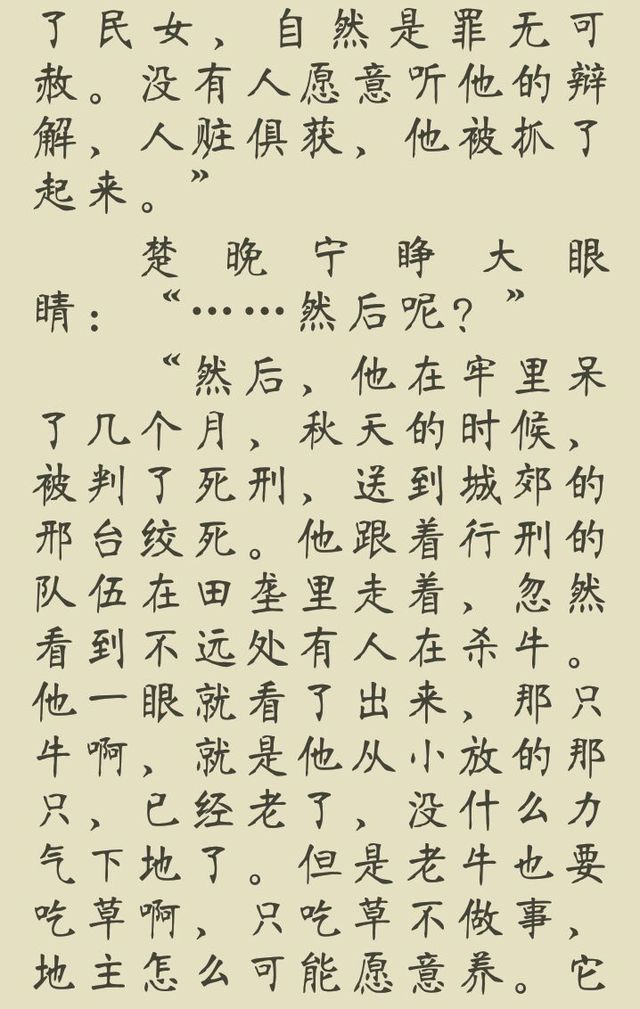 了民女，自然是罪无可
赦。没有人愿意听他的辩
解，人赃俱获，他被抓了
起来。”
楚晚宁睁大眼
睛：“……然后呢？”
“然后，他在牢里呆
了几个月，秋天的时候，
被判了死刑，送到城郊的
邢台绞死。他跟着行刑的
队伍在田垄里走着，忽然
看到不远处有人在杀牛。
他一眼就看了出来，那只
牛啊，就是他从小放的那
只，已经老了，没什么力
气下地了。但是老牛也要
吃草啊，只吃草不做事，
地主怎么可能愿意养。它